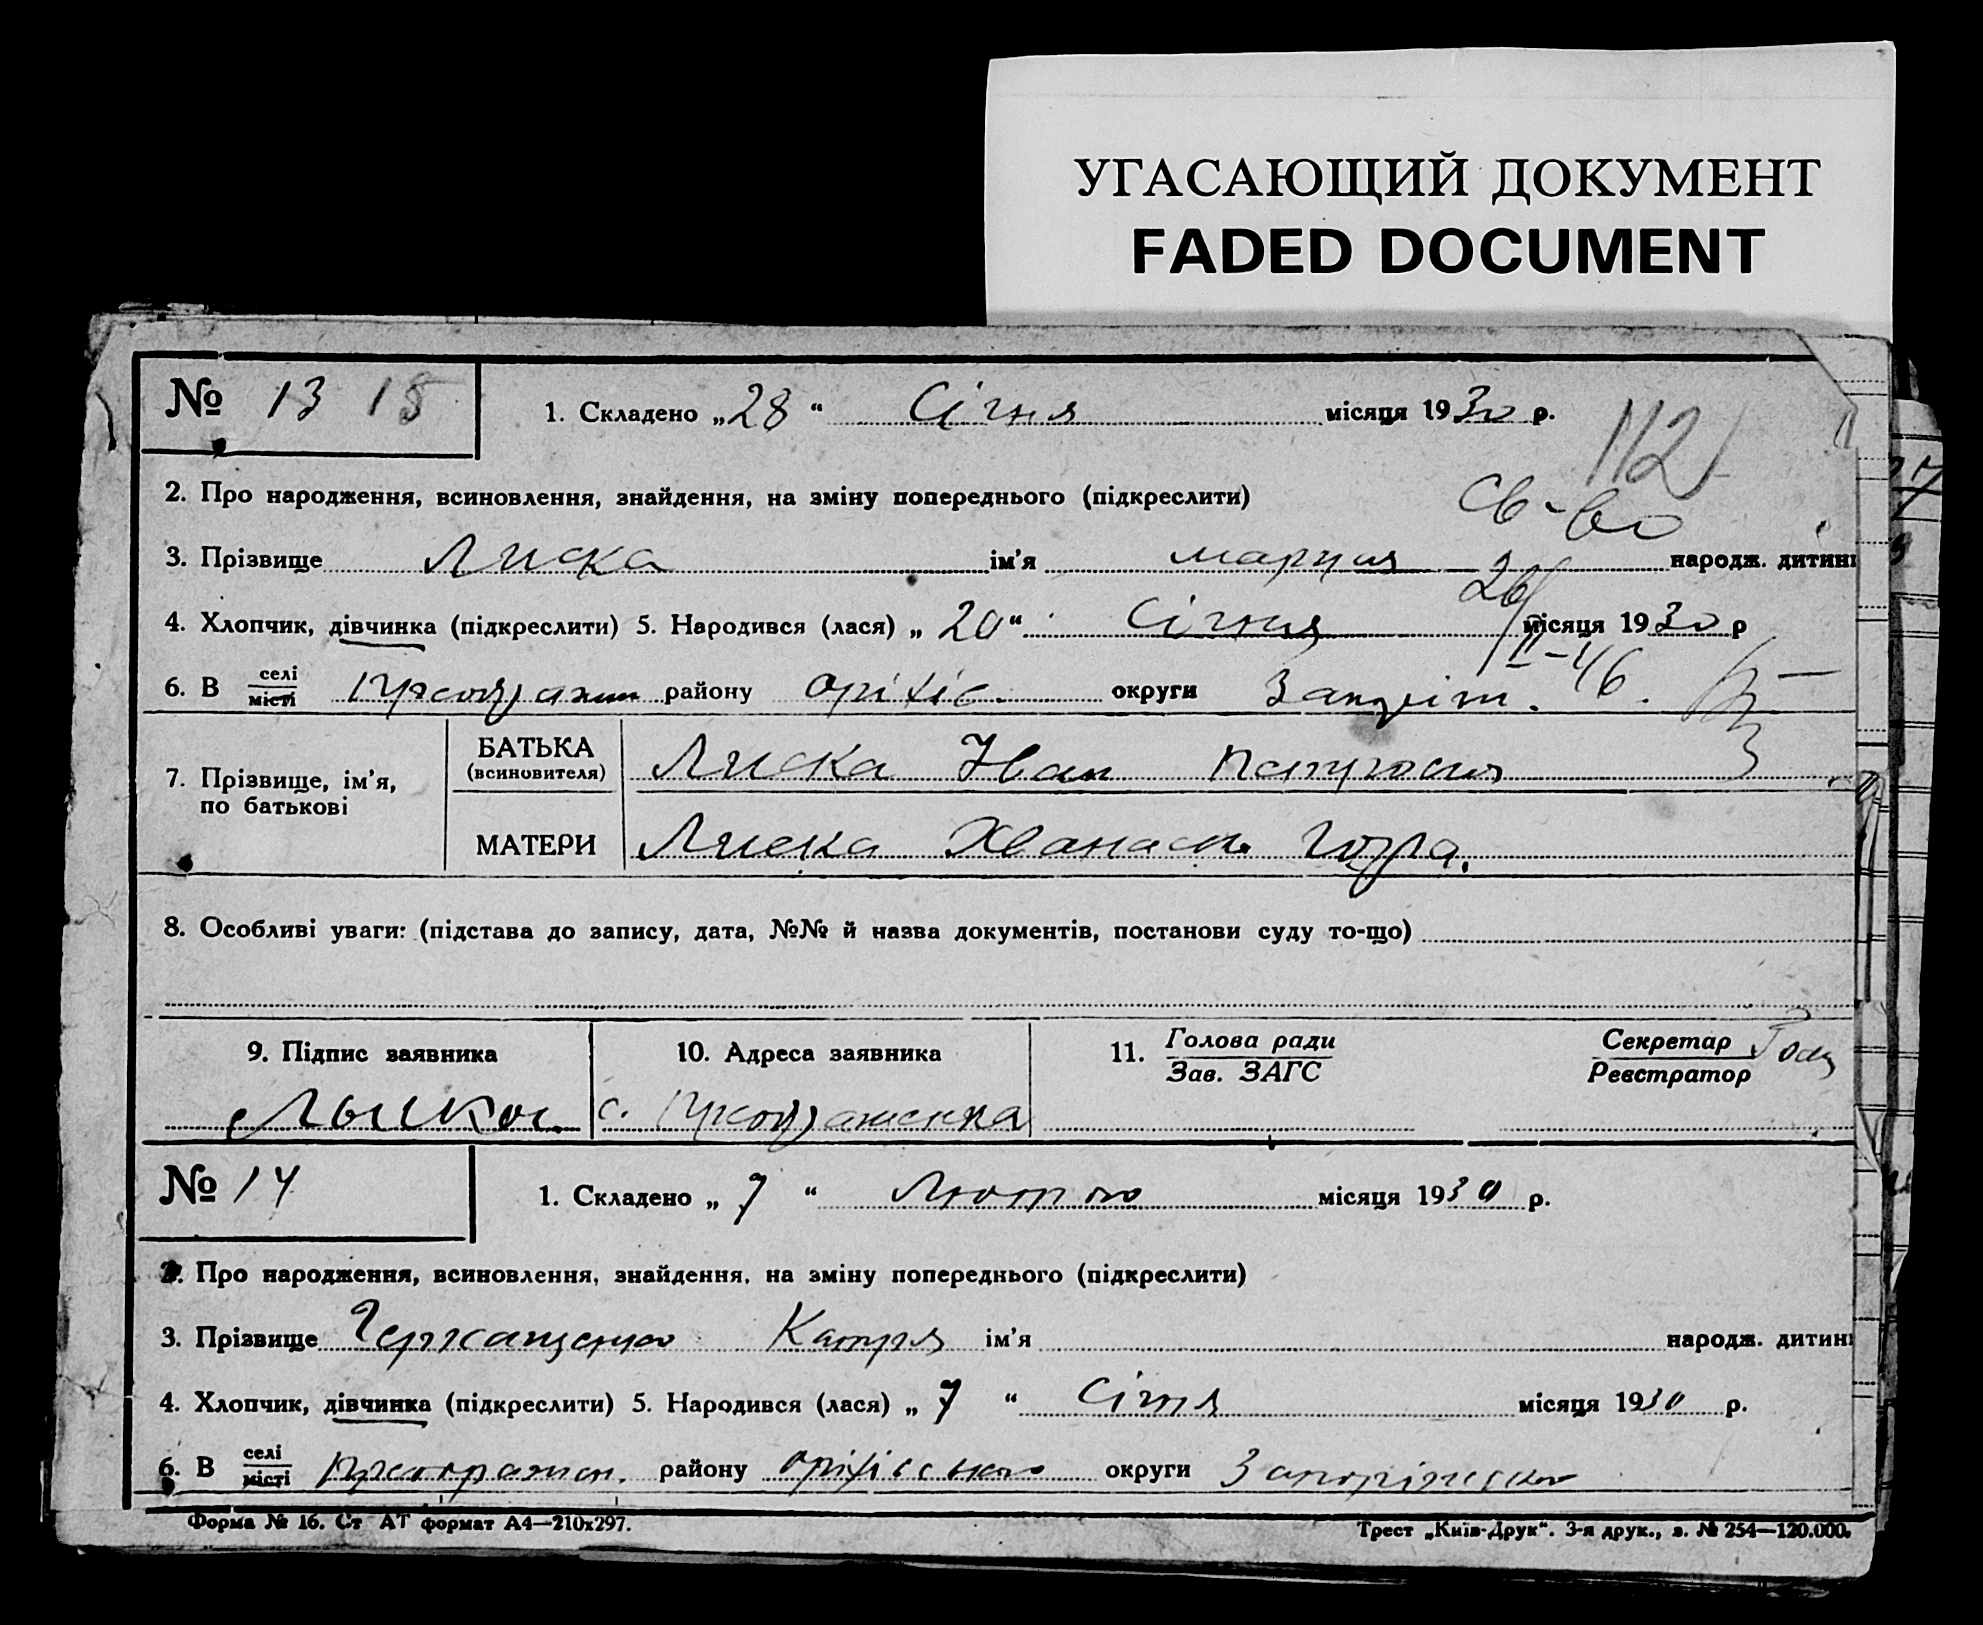 УГАСАЮЩИЙ ДОКУМЕНТ
FADED DOCUMENT
№ 13 18
1. Складено „28“ Січня місяця 1930 р.
112
2. Про народження, всиновлення, знайдення, на зміну попереднього (підкреслити)
Св-во
3. Прізвище Лиска ім'я Мария народж. дитини
26/II-46.
4. Хлопчик, дівчинка (підкреслити) 5. Народився (лася) „20“ Січня місяця 1930 р
6. В селі місті району Оріхів. округи
7. Прізвище, ім'я, по батькові
БАТЬКА (всиновителя) Лиска Иван
МАТЕРИ Лиска
8. Особливі уваги: (підстава до запису, дата, №№ й назва документів, постанови суду то-що)
9. Підпис заявника
10. Адреса заявника
11. Голова ради Зав. ЗАГС
Секретар Реєстратор
с.
№ 14
1. Складено „7“ Лютого місяця 1930 р.
2. Про народження, всиновлення, знайдення, на зміну попереднього (підкреслити)
3. Прізвище Катря ім'я народж. дитини
4. Хлопчик, дівчинка (підкреслити) 5. Народився (лася) „7“ Січня місяця 1930 р.
6. В селі місті району Оріхівського округи Запоріжсько
Форма № 16. Ст АТ формат А4—210х297.
Трест „Київ-Друк“. 3-я друк., з. № 254—120.000.